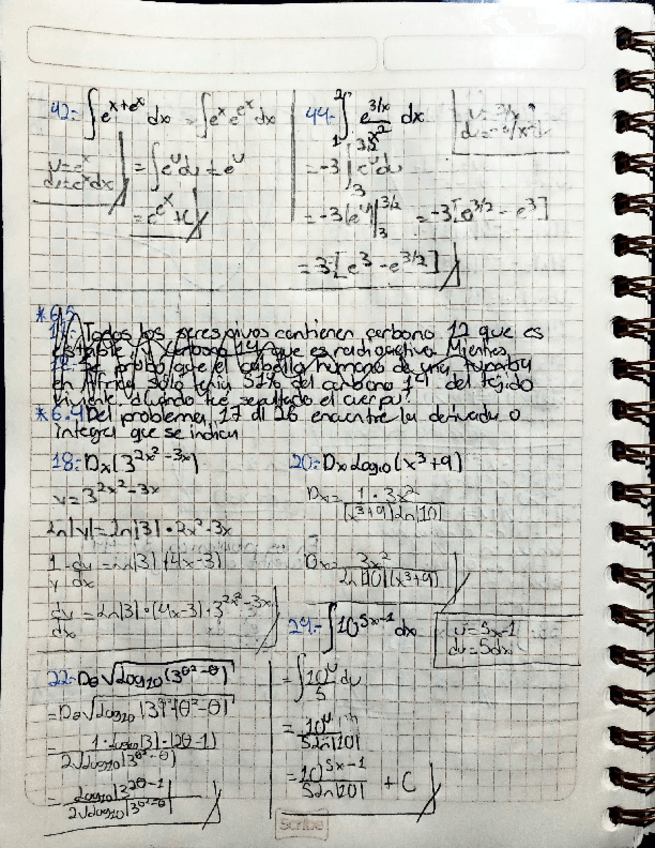 42.- ∫e^(x+e^x) dx = ∫e^x e^(e^x) dx
u=e^x
du=e^x dx
= ∫e^u du = e^u
= e^(e^x) + C
44.- ∫₁² e^(3/x)/x² dx
u=3/x
= -3 ∫₃^(3/2) e^u du
= -3(e^u)|₃^(3/2) = -3[e^(3/2) - e^3]
= 3[e^3 - e^(3/2)]
*6.5
Todos los seres vivos contienen carbono 12 que es
estable y carbono 14 que es radioactivo. Mientras
Se probo que el cabello humano de una tumba
en África solo tenia 51% del carbono 14 del tejido
viviente. ¿Cuando fue sepultado el cuerpo?
*6.4 Del problema 17 al 26 encuentre la derivada o
integral que se indican
18.- Dx(3^(2x²-3x))
y=3^(2x²-3x)
ln|y|=ln|3| • 2x²-3x
1/y dy/dx = ln|3|(4x-3)
dy/dx = ln|3|•(4x-3)•3^(2x²-3x)
20.- Dx Log10(x³+9)
Dx= 1 • 3x²/(x³+9)ln|10|
Dx= 3x²/ln|10|(x³+9)
22.- Dθ √Log10(3^(θ²-θ))
24.- ∫10^(5x-1) dx
u=5x-1
du=5dx
= ∫10^u/5 du
= 10^u/5ln|10|
= 10^(5x-1)/5ln|10| + C
Scribe